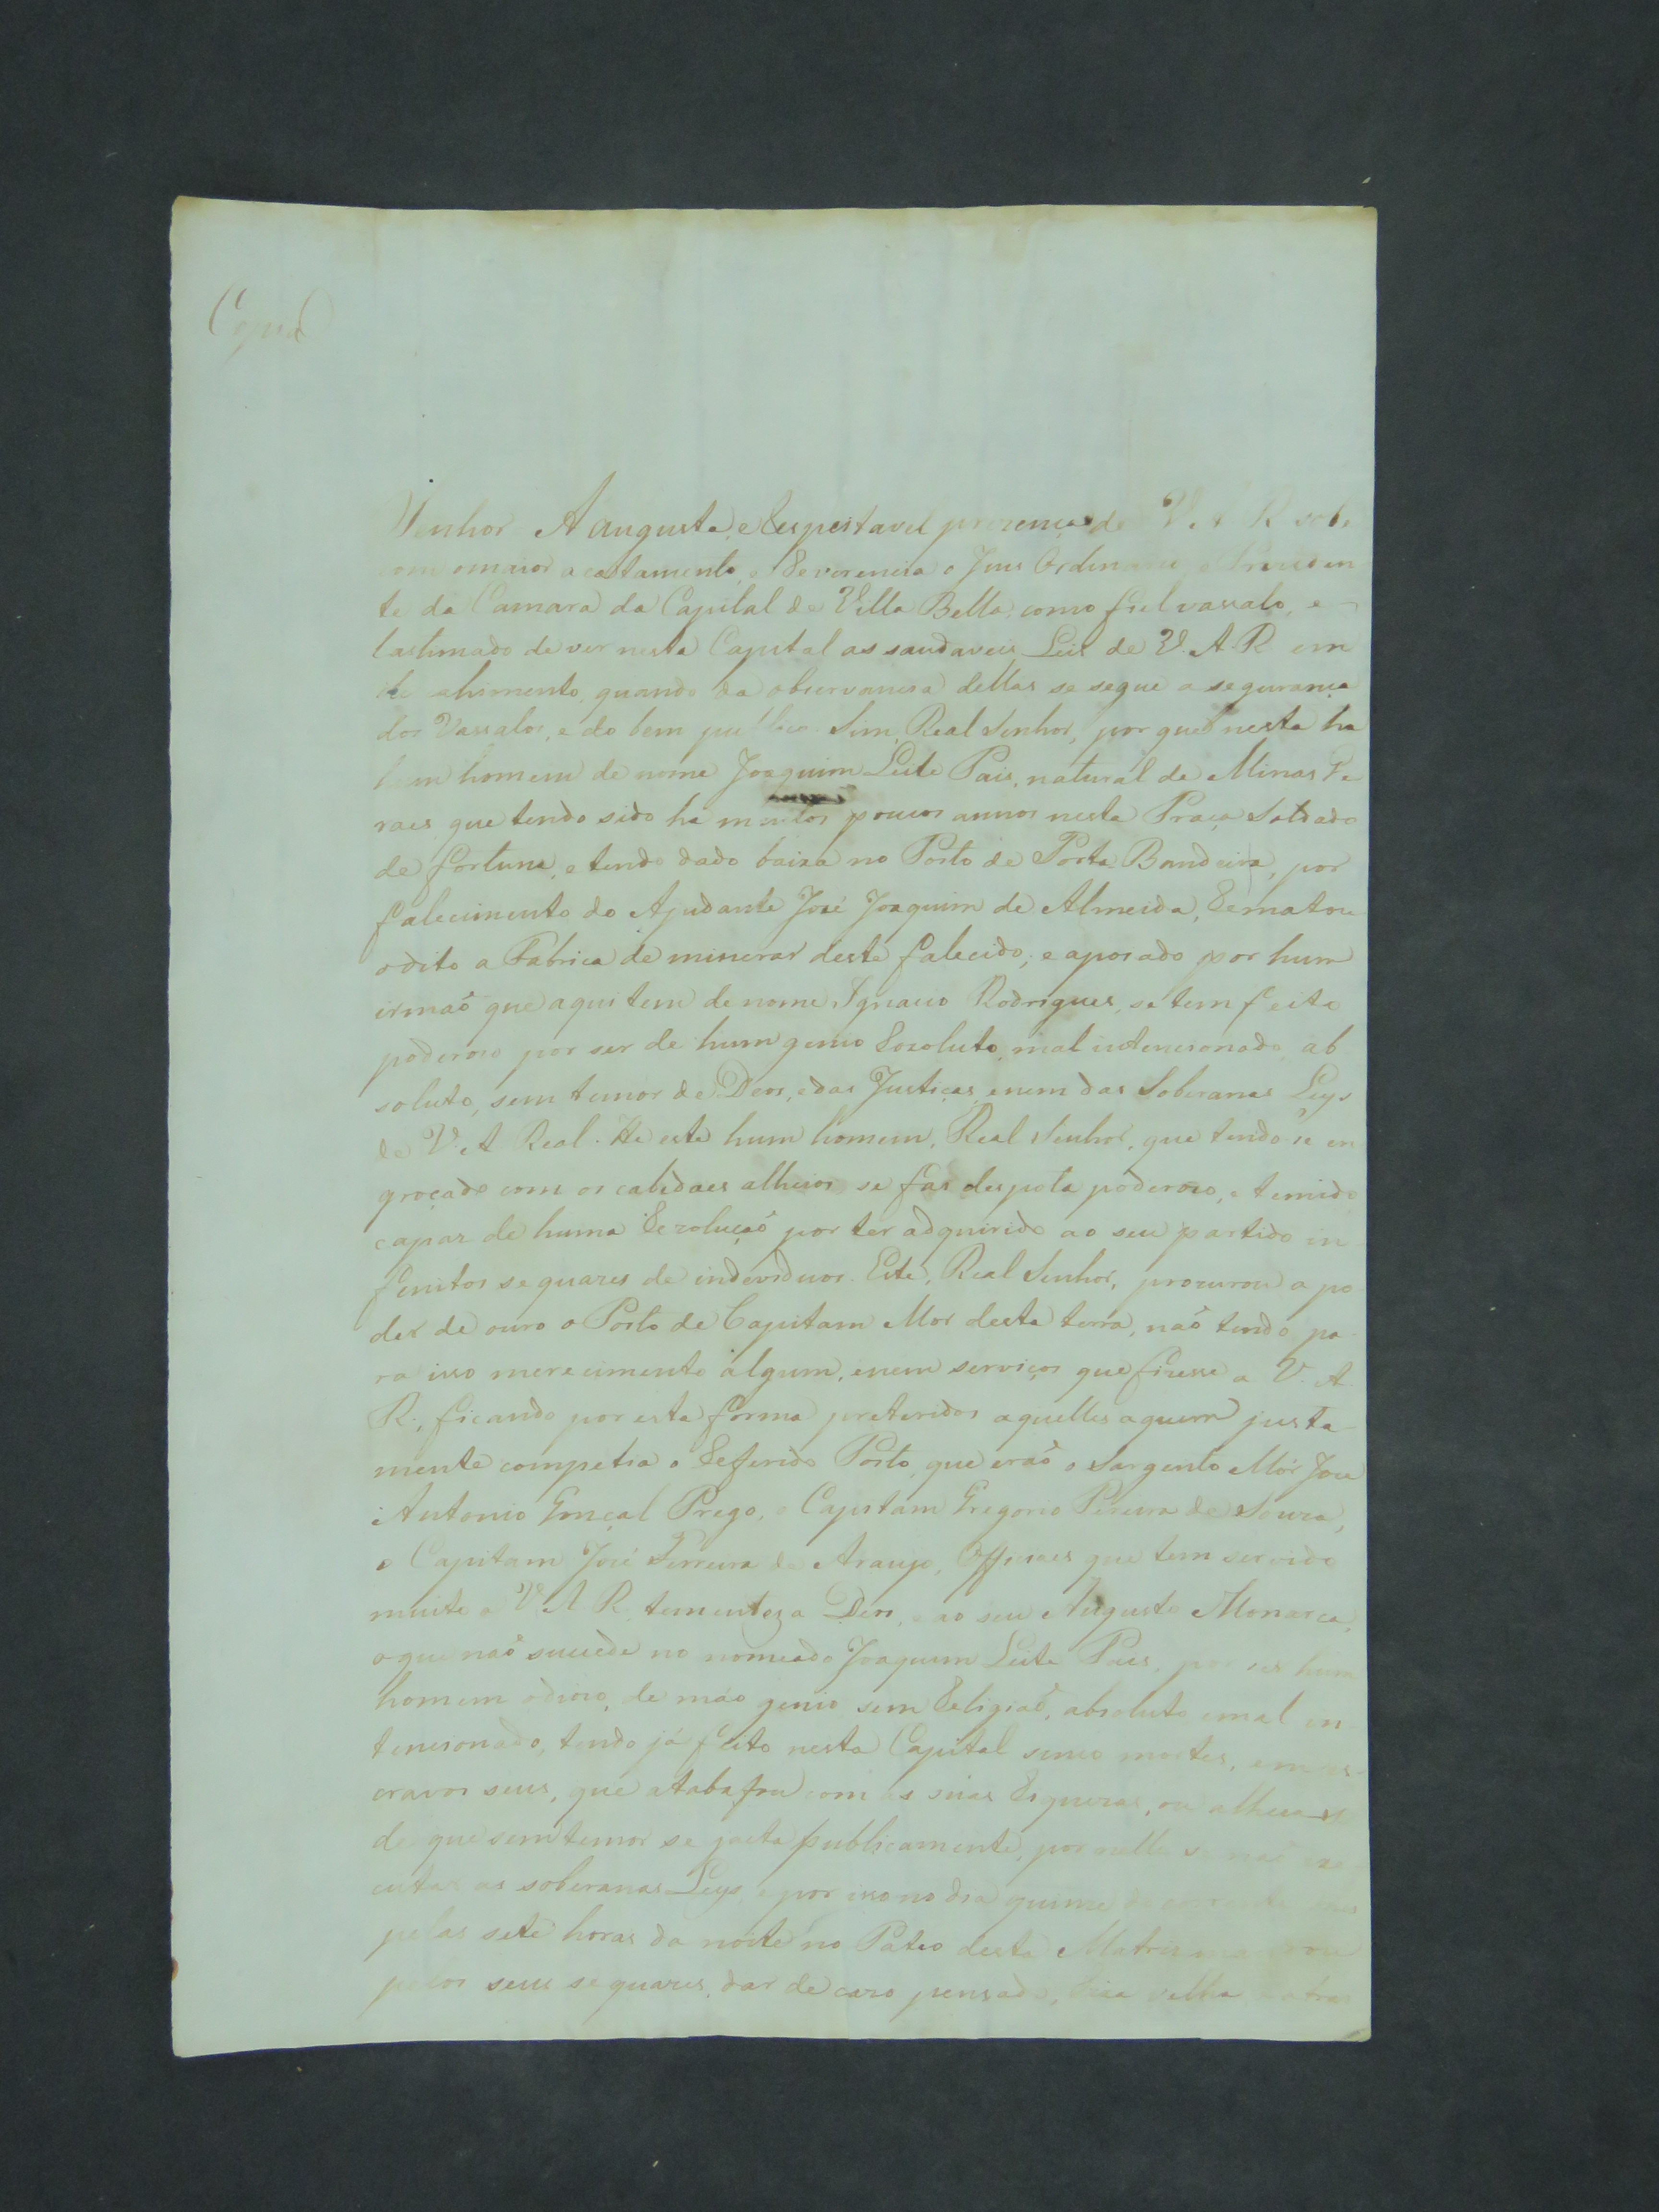 Copia
Senhor A augusta, e Respeitavel prezença de V. A. R sobe
com o maior acattamento, e Reverencia o Juis Ordinario e Preziden
te da Camara da Capital de Villa Bella, como fiel vassalo, e
lastimado de ver nesta Capital as saudaveis Leis de V. A. R em
abimento, quando da observancia dellas se segue a segurança
dos Vassalos, e do bem publico. Sim, Real Senhor, por que nesta ha
hum homem de nome Joaquim Leite Pais, natural de Minas Ge
raes que tendo sido ha muitos poucos annos nesta Praça Soldado
de fortuna, e tendo dado baixa no Posto de Porta Bandeira, por
falecimento do Ajudante José Joaquim de Almeida, Rematou
o dito a Fabrica de minerar deste falecido; e apoiado por hum
irmaõ que aqui tem de nome Ignacio Rodrigues, se tem feito
poderozo por ser de hum genio Rezoluto, mal intencionado, ab
soluto, sem temor de Deos, e das Justiças, e nem das Soberanas Leys
de V. A Real. He este hum homem, Real Senhor, que tendo-se en
groçado com os cabedaes alheios se fas despota poderozo, e temido
capaz de huma Rezoluçaõ por ter adquirido ao seu partido in
fenitos sequazes de individuos. Este, Real Senhor, procurou a po
der de ouro o Posto de Capitam Mor desta terra, naõ tendo pa
ra isso merecimento algum, e nem serviços que fizesse a V. A
R., ficando por esta forma preteridos aquelles a quem justa
mente competia o Referido Posto, que eraõ o Sargento Mór Joze
Antonio Gonçal Prego, o Capitam Gregorio Pereira de Souza,
o Capitam José Ferreira de Araujo, Officiaes que tem servido
muito a V. A. R. tementes a Deos, e ao seu Augusto Monarca,
o que naõ sucede no nomeado Joaquim Leite Paes, por ser hum
homem odiozo, de máo genio sem Religiaõ, absoluto e mal in
tencionado, tendo já feito nesta Capital sinco mortes, em es
cravos seus, que atabafou com as suas Riquezas, ou alheias
de que sem temor se jacta publicamente, por nelle se naõ exe
cutar as soberanas Leys e por isso no dia quinze do corrente mes
pelas sete horas da noite no Pateo desta Matris
pelos seus sequazes, dar de cazo pensado,